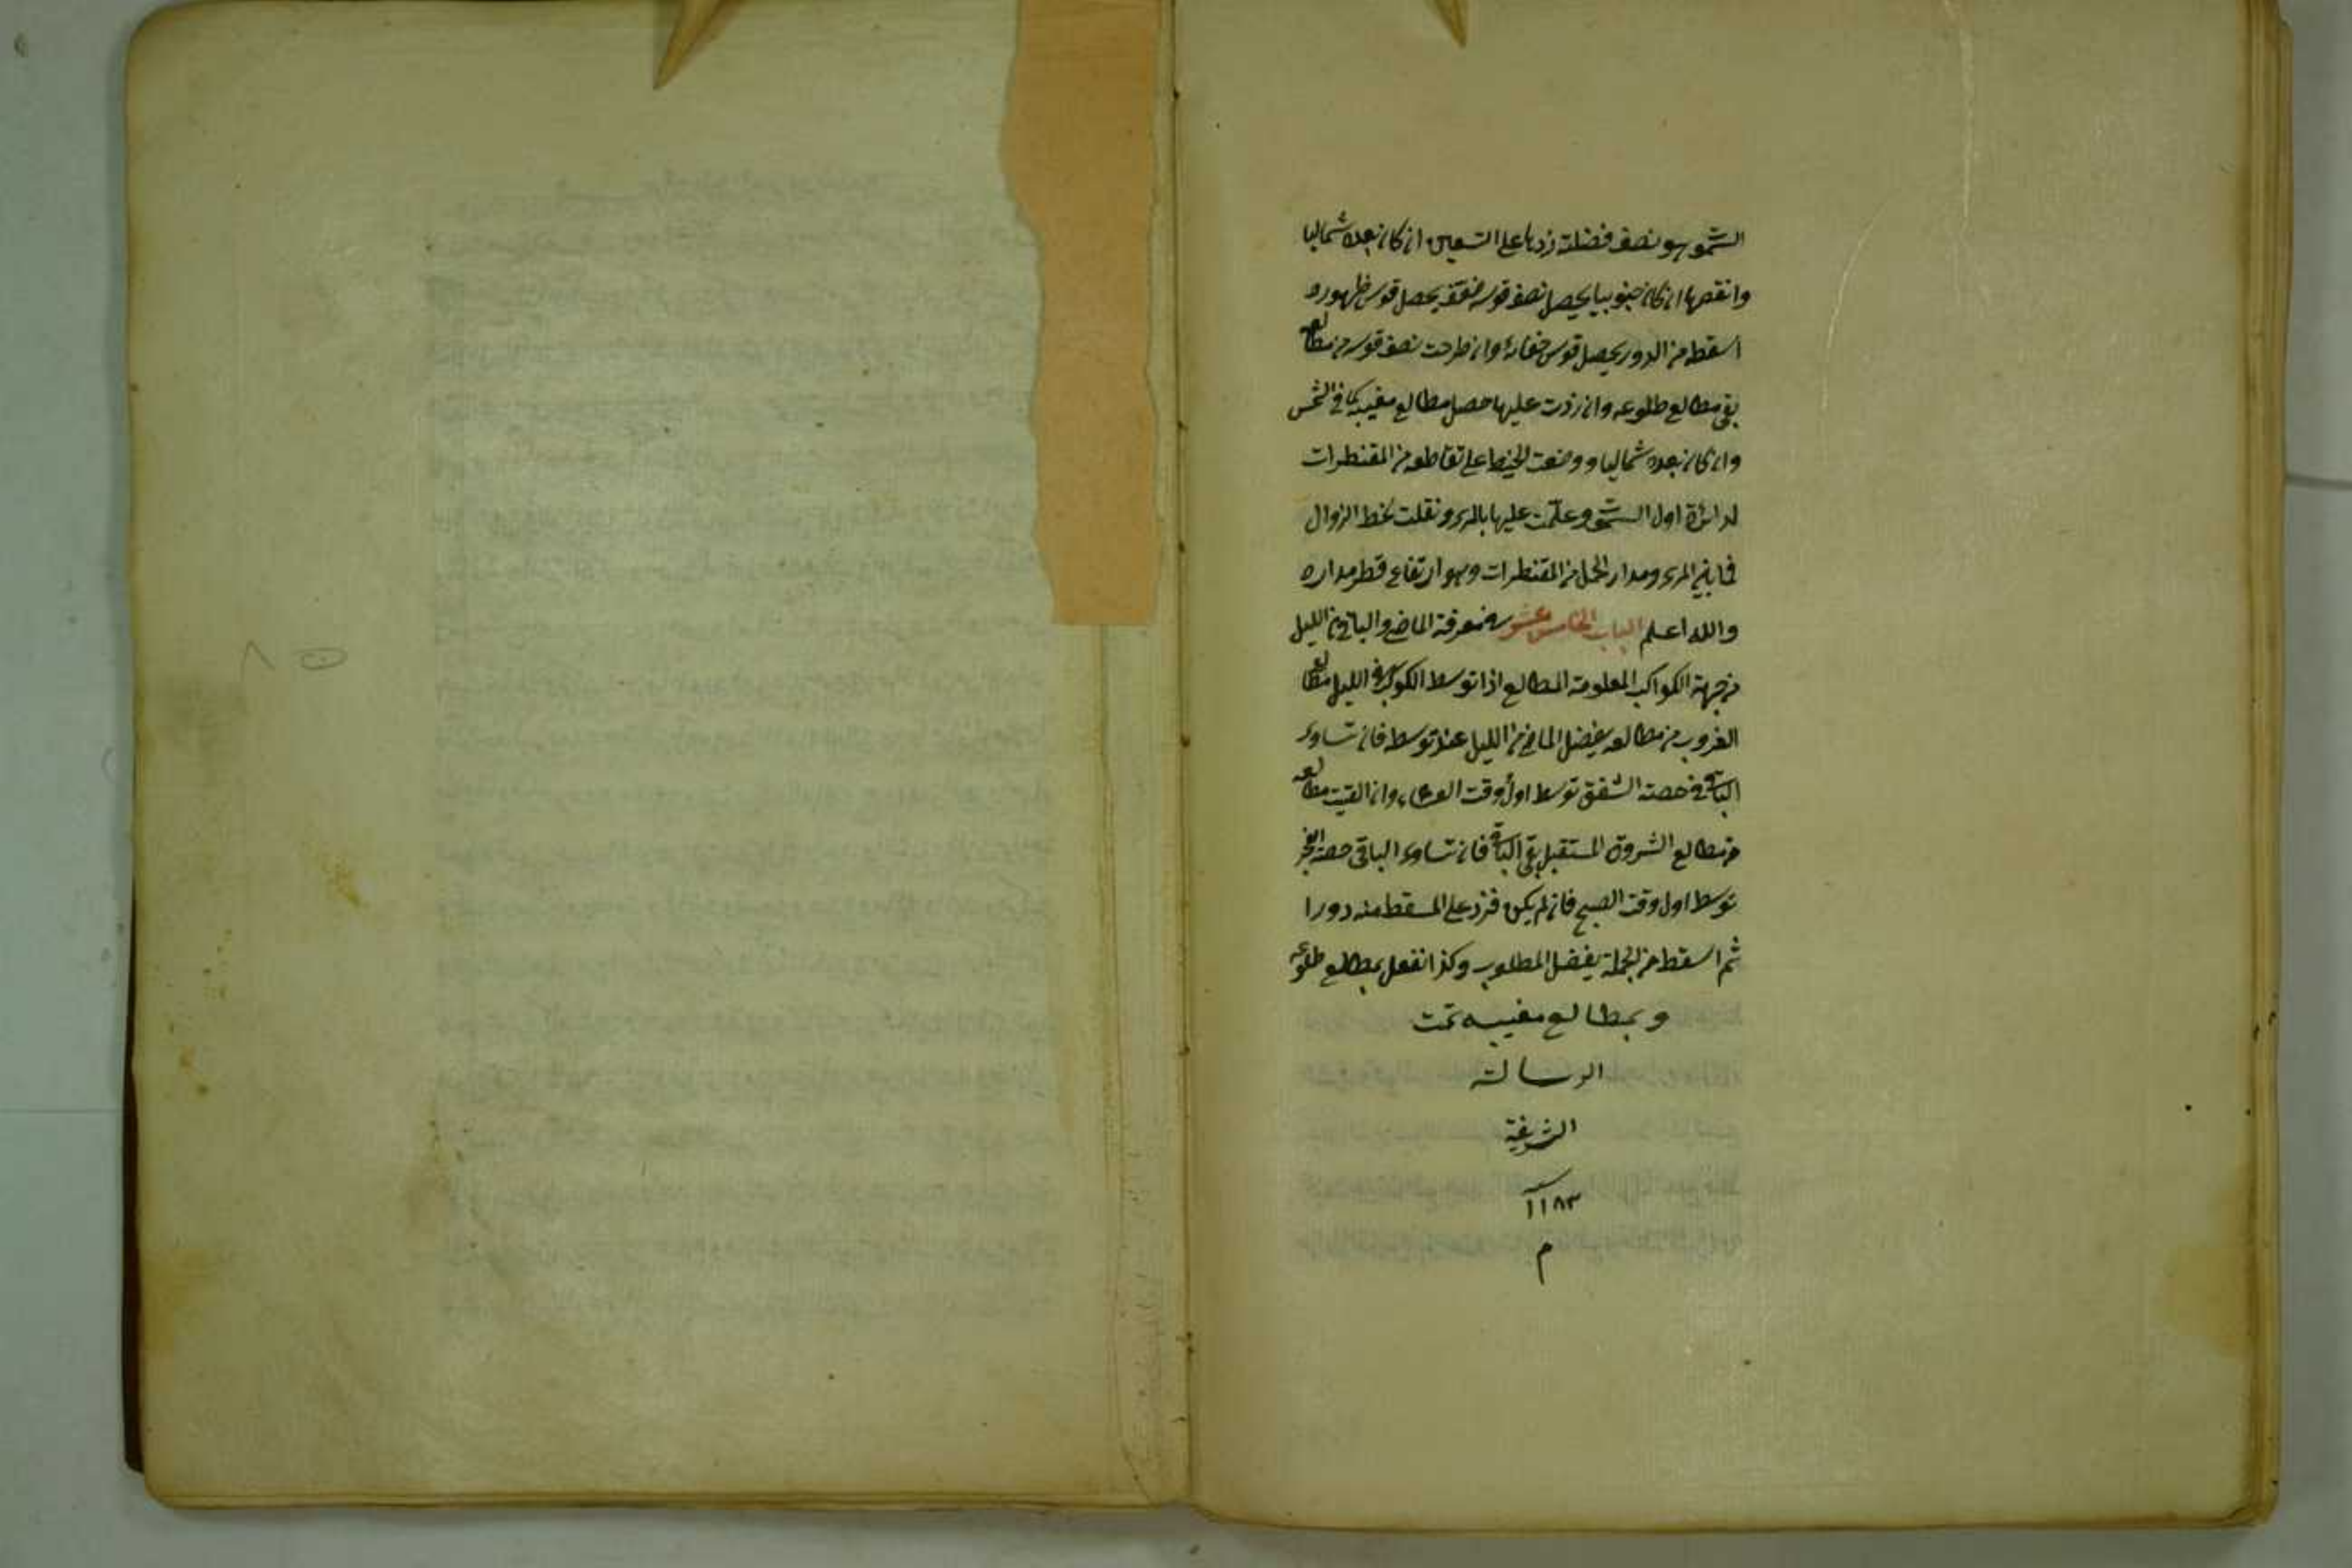 السموت وهو نصف فضلته زدها على التسعين ان كان بعده شماليا
وانقصها ان كان جنوبيا يحصل نصف قوسه ضعفه يحصل قوس ظهوره
اسقطه من الدور يحصل قوس خفائه وان طرحت نصف قوسه من مطالعه
بقي مطالع طلوعه وان زدت عليها حصل مطالع مغيبه كما في الشمس
وان كان بعده شماليا ووضعت الخيط على تقاطعه من المقنطرات
لدائرة اول السموت وعلمت عليها بالمري ونقلت لخط الزوال
فما بين المري ومدار الحمل من المقنطرات وهو ارتفاع قطر مداره
والله اعلم الباب الخامس عشر في معرفة الماضي والباقي من الليل
من جهة الكواكب المعلومة المطالع اذا توسط الكوكب في الليل مطالع
الغروب من مطالعه يفضل الماضي من الليل عند توسطه فان تساوى
الباقي حصة الشفق توسط اول وقت العشاء وان القيت مطالعه
من مطالع الشروق المستقبل بقي الباقي فان تساوى الباقي حصة الفجر
توسط اول وقت الصبح فان لم يكن فزد على المسقط منه دورا
ثم اسقط من الجملة يفضل المطلوب وكذا تفعل بمطالع طلوعه
وبمطالع مغيبه تمت
الرسالة
الشريفة
سنه ١١٨٣
م
٨٥